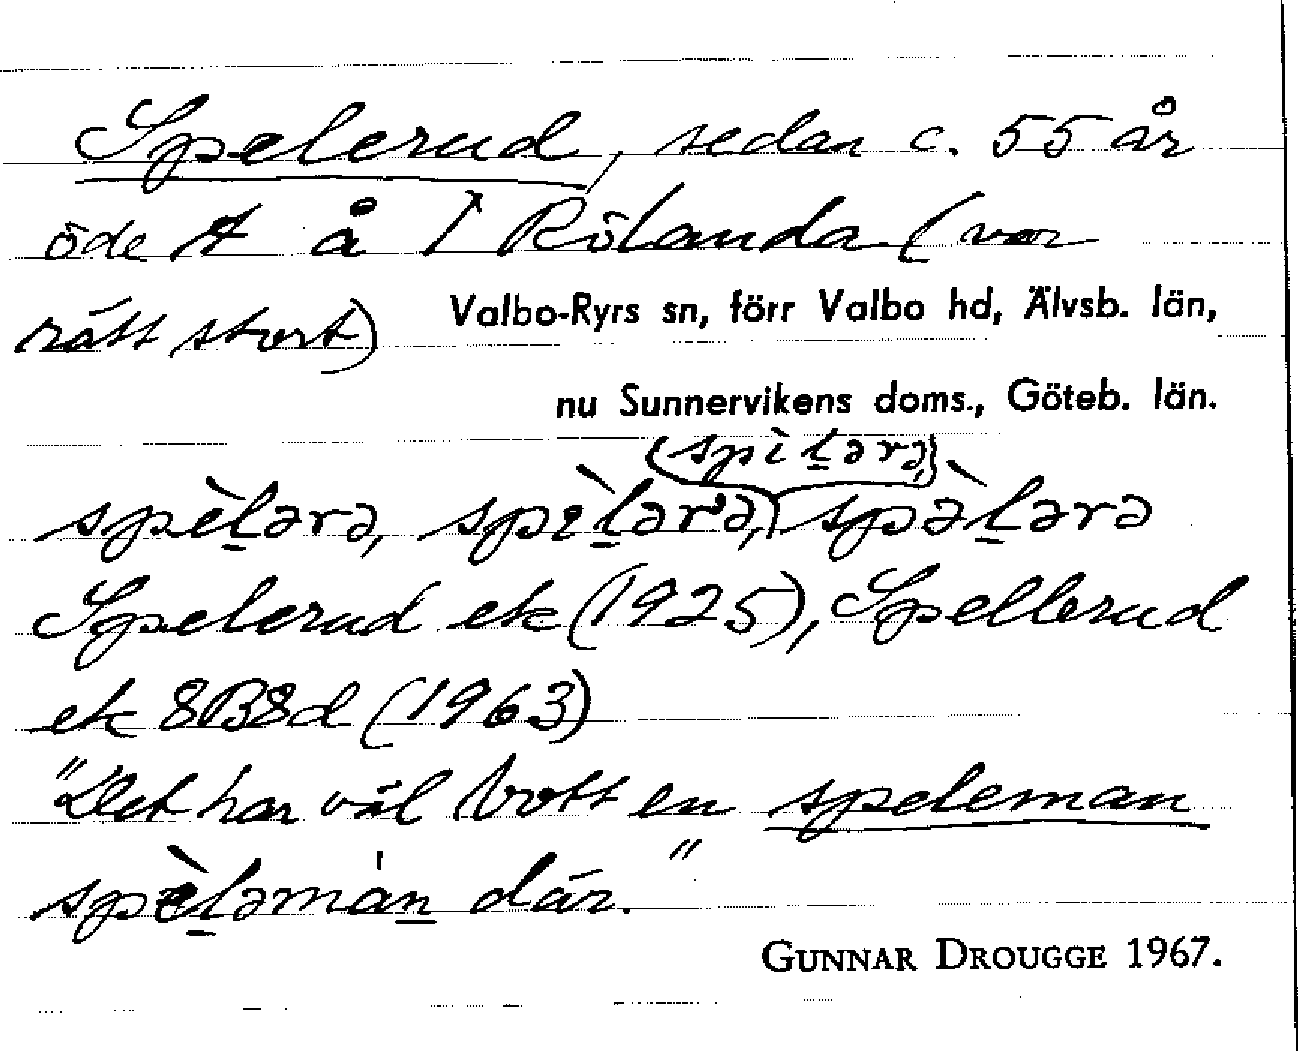 Spelerud, sedan c. 55 år
öde t å 1 Rölanda (var
rätt stort)
Valbo-Ryrs sn, förr Valbo hd, Älvsb. län,
nu Sunnervikens doms., Göteb. län.
(spìḻərə)
spèḻərə, spìḻərə, spəḻərə
Spelerud ek (1925), Spellerud
ek 8B8d (1963)
"Det har väl bott en speleman
spèḻəmàṉ där."
GUNNAR DROUGGE 1967.